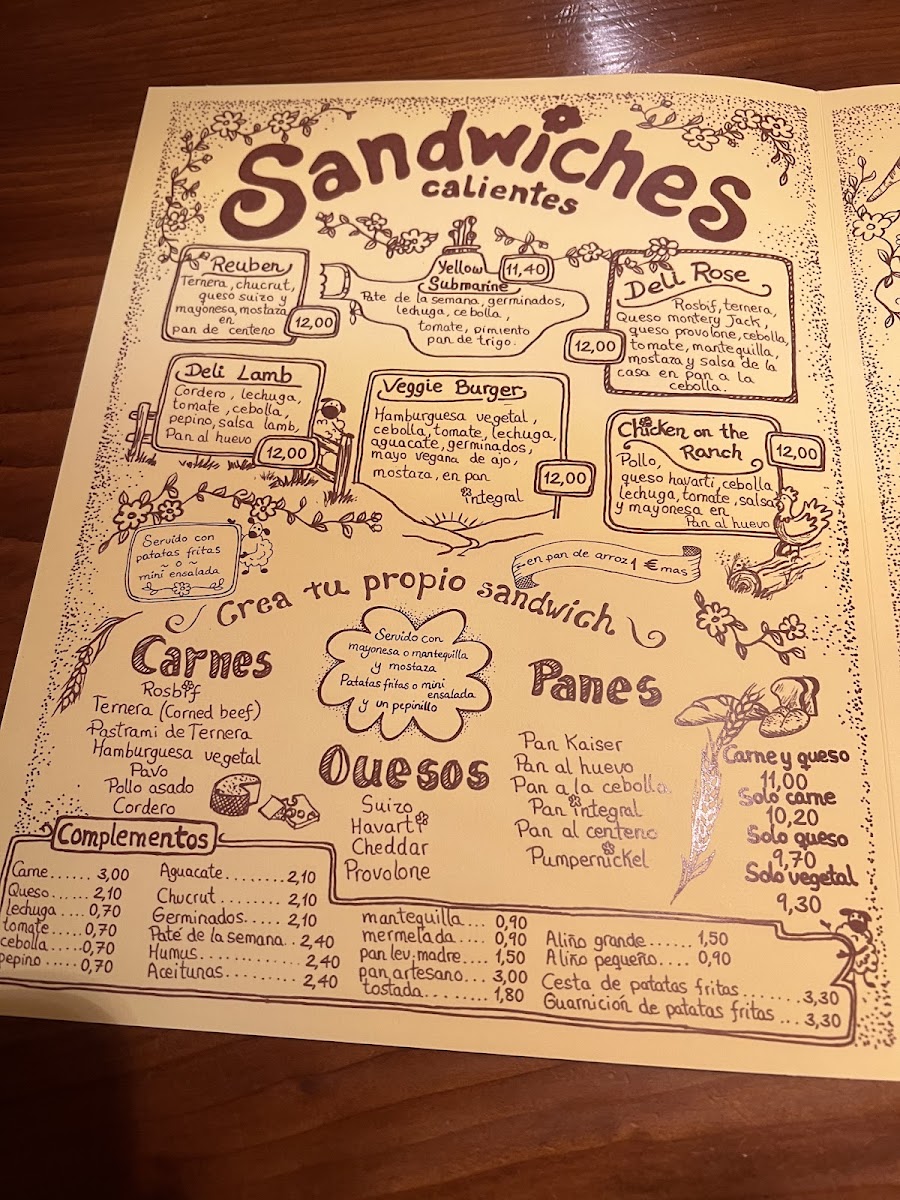 Sandwiches
calientes
Reuben
Ternera, chucrut,
queso suizo y
mayonesa, mostaza
en
pan de centeno
12,00
Yellow
Submarine
11,40
Pate de la semana, germinados,
lechuga, cebolla,
tomate, pimiento
pan de trigo.
Deli Rose
Rosbif, ternera,
Queso montery Jack,
queso provolone, cebolla,
tomate, mantequilla,
mostaza y salsa de la
casa en pan a la
cebolla.
12,00
Deli Lamb
Cordero, lechuga,
tomate, cebolla,
pepino, salsa lamb,
Pan al huevo
12,00
Veggie Burger
Hamburguesa vegetal,
cebolla, tomate, lechuga,
aguacate, germinados,
mayo vegana de ajo,
mostaza, en pan
integral
12,00
Chicken on the
Ranch
12,00
Pollo,
queso havarti, cebolla
lechuga, tomate, salsa
y mayonesa en
Pan al huevo
Servido con
patatas fritas
~ o ~
mini ensalada
en pan de arroz 1 € mas
Crea tu propio sandwich
Carnes
Rosbif
Ternera (Corned beef)
Pastrami de Ternera
Hamburguesa vegetal
Pavo
Pollo asado
Cordero
Servido con
mayonesa o mantequilla
y mostaza
Patatas fritas o mini
ensalada
y un pepinillo
Quesos
Suizo
Havarti
Cheddar
Provolone
Panes
Pan Kaiser
Pan al huevo
Pan a la cebolla
Pan integral
Pan al centeno
Pumpernickel
Carne y queso
11,00
Solo carne
10,20
Solo queso
9,70
Solo vegetal
9,30
Complementos
Carne...... 3,00
Queso..... 2,10
lechuga .... 0,70
tomate.....0,70
cebolla.....0,70
pepino .... 0,70
Aguacate........2,10
Chucrut ........ 2,10
Germinados..... 2,10
Paté de la semana.. 2,40
Humus........... 2,40
Aceitunas........ 2,40
mantequilla.... 0,90
mermelada.... 0,90
pan lev. madre... 1,50
pan artesano... 3,00
tostada........ 1,80
Aliño grande...... 1,50
Aliño pequeño.... 0,90
Cesta de patatas fritas ....... 3,30
Guarnición de patatas fritas ... 3,30